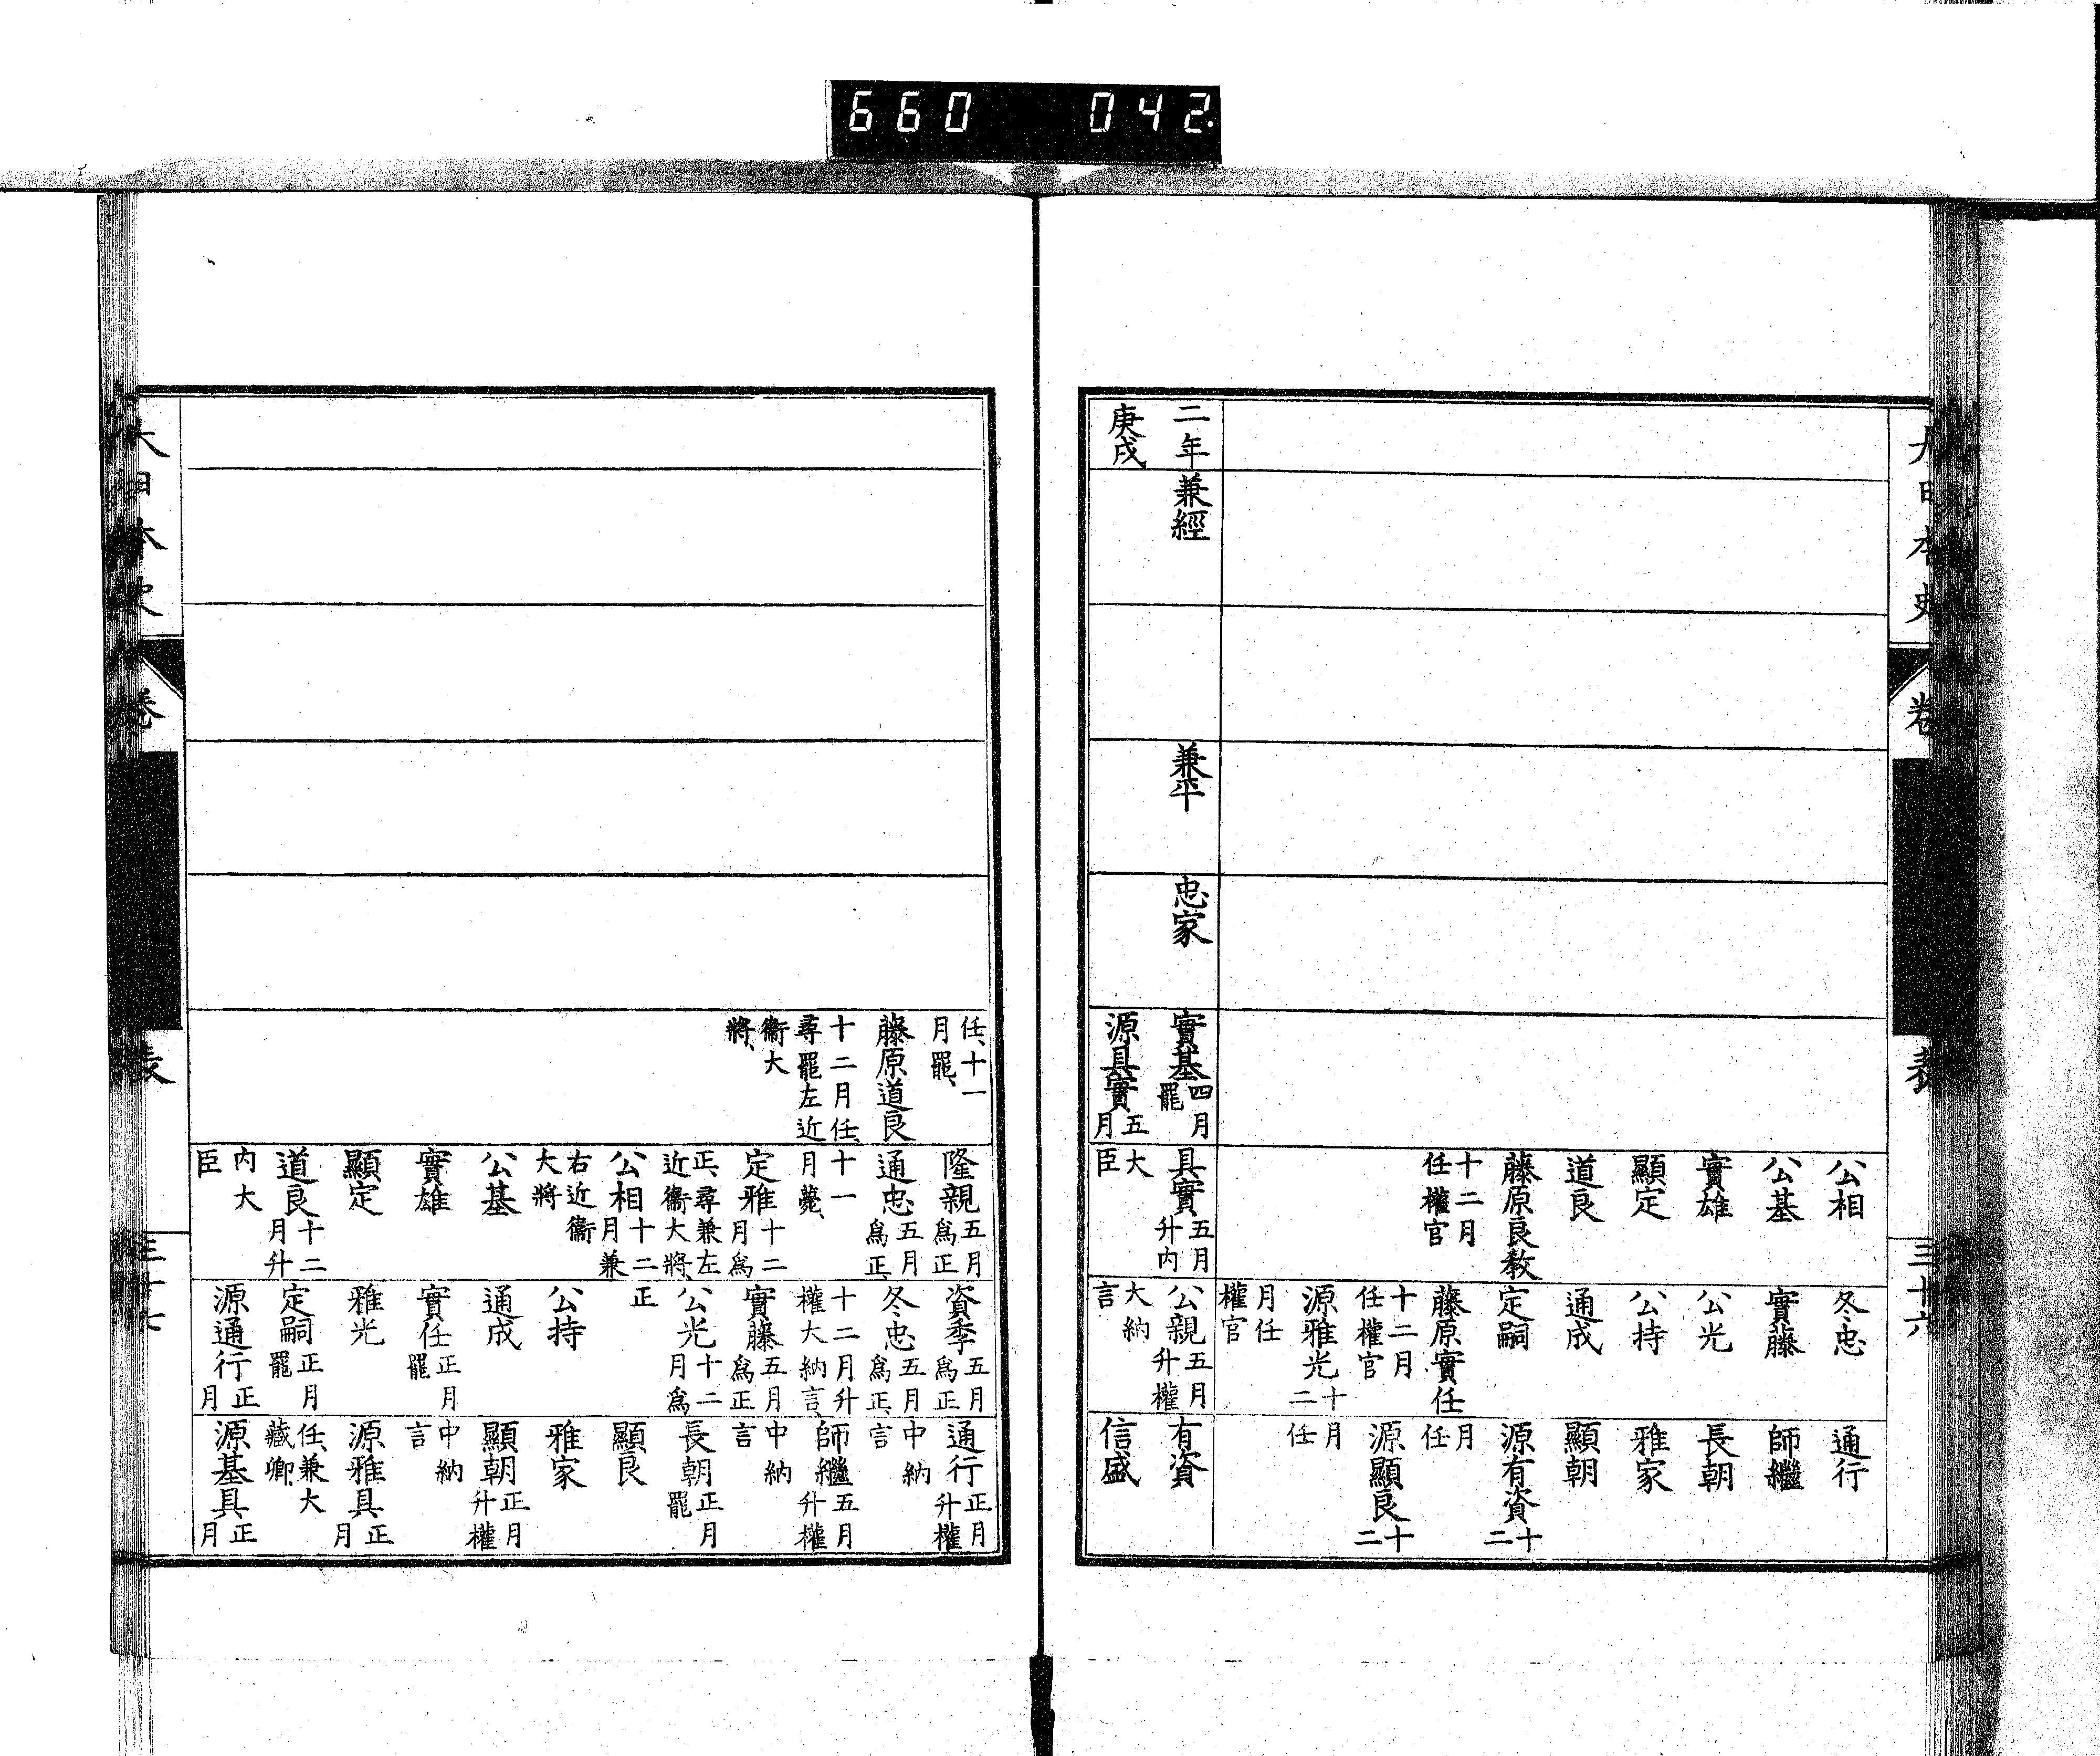 660 042
大日本史
卷
表
三十六
公相
公基
實雄
顯定
道良
藤原良教十二月任權官
冬忠
實藤
公光
公持
通成
定嗣
藤原實任十二月任權官
源雅光十二月任權官
通行
師繼
長朝
雅家
顯朝
源有資十二月任
源顯良十二月任
二年
庚戌
兼經
兼平
忠家
實基四月罷
源具實五月
具實五月升内大臣
公親五月升權大納言
有資
信盛
任、十一月罷、
藤原道良十二月任、尋罷左近衞大將、
隆親五月爲正
通忠五月爲正、十一月薨、
定雅十二月爲正、尋兼左近衞大將、
公相十二月兼右近衞大將
公基
實雄
顯定
道良十二月升内大臣
資季五月爲正
冬忠五月爲正、十二月升權大納言、
實藤五月爲正
公光十二月爲正
公持
通成
實任正月罷
雅光
定嗣正月罷
源通行正月
通行正月升權中納言
師繼五月升權中納言
長朝正月罷
顯良
雅家
顯朝正月升權中納言
源雅具正月任、兼大藏卿、
源基具正月
大日本史
卷
表
三十七